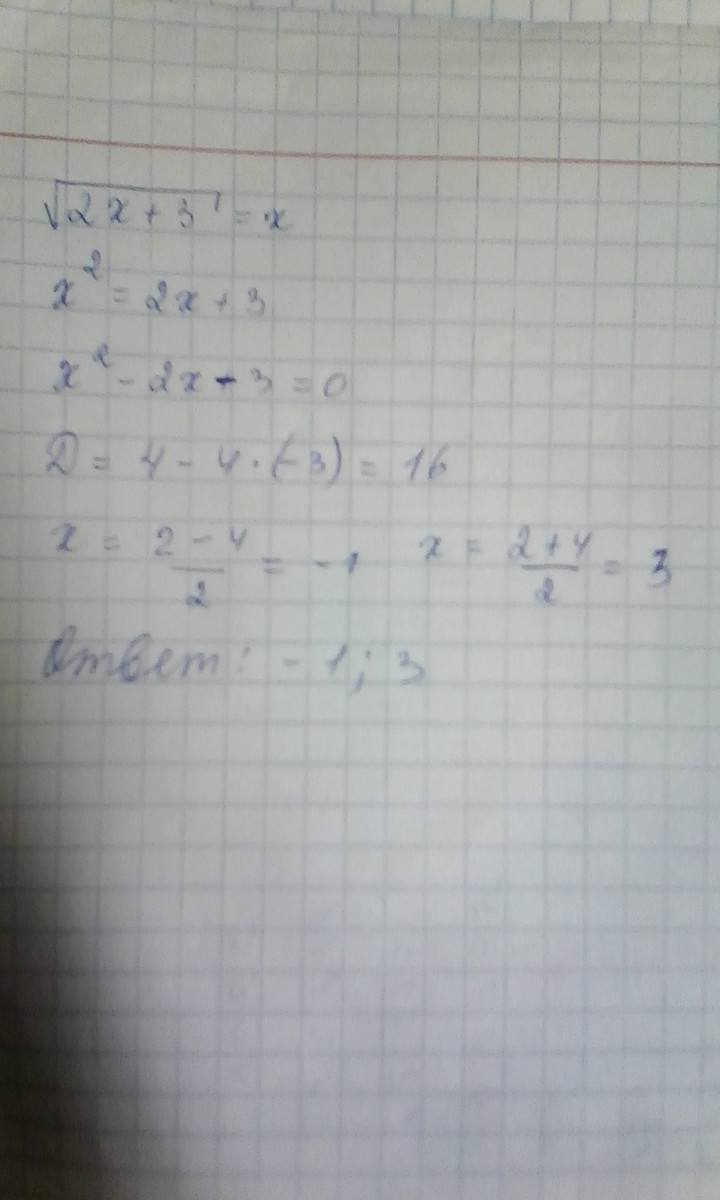 √(2x + 3) = x
x² = 2x + 3
x² - 2x - 3 = 0
D = 4 - 4 · (-3) = 16
x = (2 - 4)/2 = -1 x = (2 + 4)/2 = 3
Ответ: -1; 3